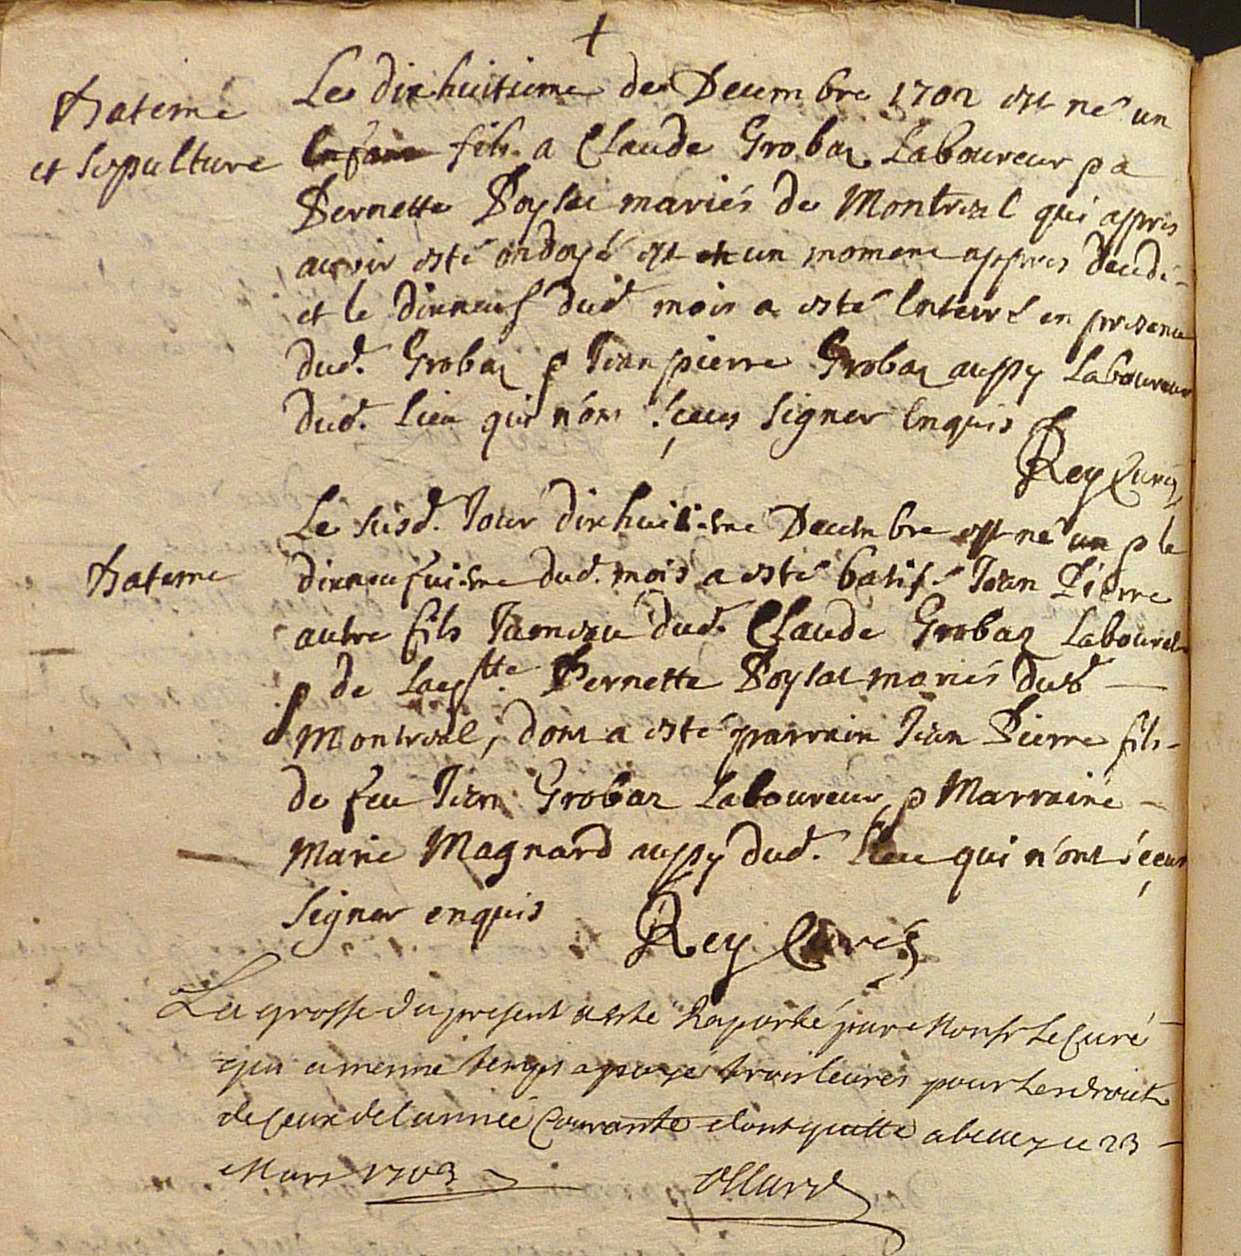 +
Bateme
et sepulture
Le dixhuitieme de Decembre 1702 est né un
fils a Claude Grobaz Laboureur p a
Pernette Poysat mariés de Montreal qui appres
avoir esté ondoyé est un moment appres decedé
et le dixneuf dud. mois a esté Enterré en presence
dud. Grobaz p Jean pierre Grobaz aussy Laboureur
dud. Lieu qui n'ont sceus signer Enquis
Rey Curé
Bateme
Le susd. Jour dixhuitieme Decembre est né un p le
dixneufuieme dud. mois a esté batisé Jean Pierre
autre fils Jumeau dud. Claude Grobaz Laboureur
p de Laditte Pernette Poysat mariés dud
Montreal, dont a esté parrain Jean Pierre fils
de feu Jean Grobaz Laboureur, p Marraine
Marie Magnard aussy dud. Lieu qui n'ont sceus
signer enquis
Rey Curé
La grosse du present a esté Raporté par Monsr Le Curé
qui a meme temps a payé trois Livres pour Les droits
de ceux de L'année Courante dont quitte a ce 23
Mars 1703